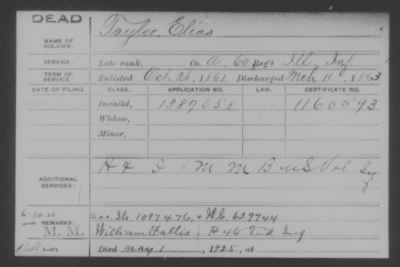 DEAD
NAME OF SOLDIER: Taylor, Elias
SERVICE: Late rank, Co. A, 60 Reg't Ill. Inf.
TERM OF SERVICE: Enlisted Oct. 26, 1861 Discharged Mch 11, 1863
DATE OF FILING. CLASS. APPLICATION NO. LAW CERTIFICATE NO.
Invalid, 1289658 1160093
Widow,
Minor,
ADDITIONAL SERVICES: H & I 1 M M B US Vol Inf
REMARKS: 1097476, 629744
M. M. William Fallis H 46 Ind Inf
Died May 1, 1925, at